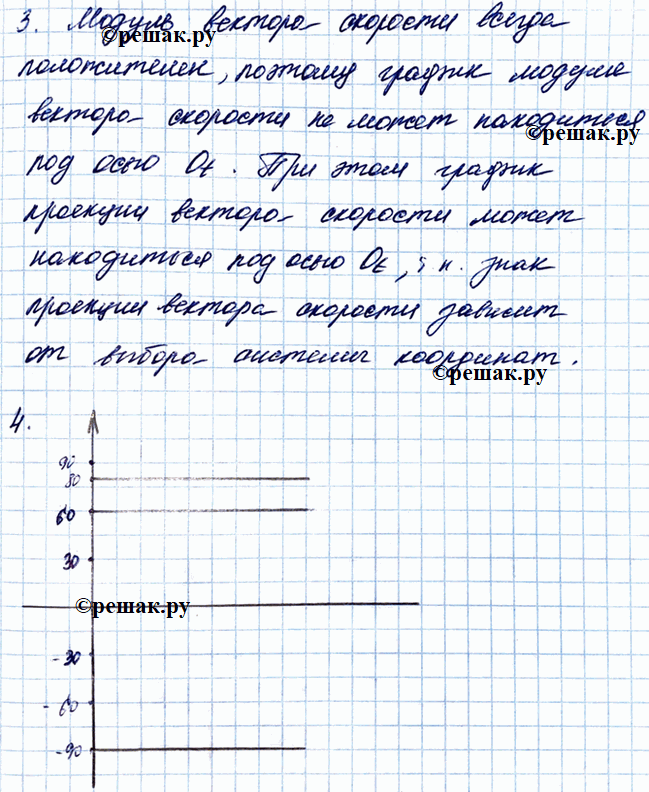 3. Модуль вектора скорости всегда
©решак.ру
положителен, поэтому график модуля
вектора скорости не может находиться
©решак.ру
под осью Ot. При этом график
проекции вектора скорости может
находиться под осью Ot, т.к. знак
проекции вектора скорости зависит
от выбора системы координат.
©решак.ру
4.
90
80
60
30
©решак.ру
-30
-60
-90